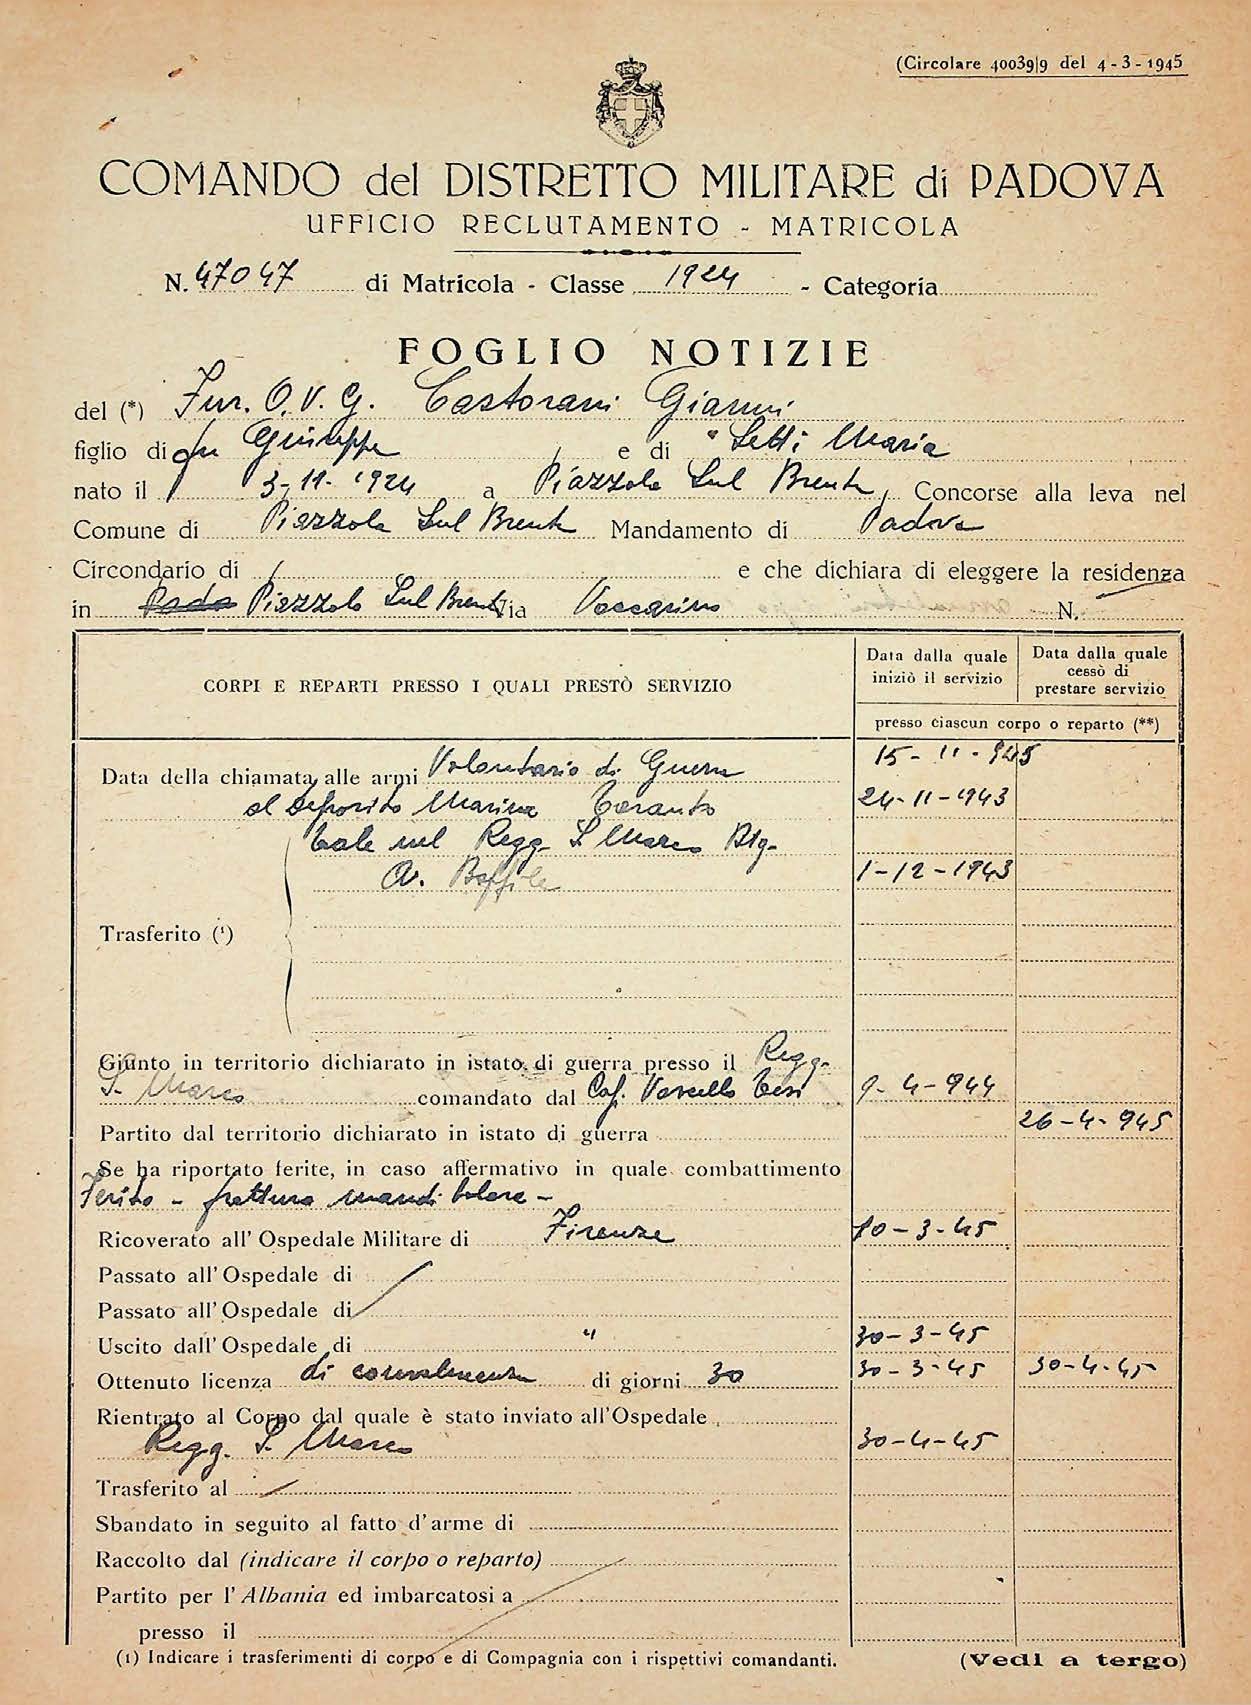 (Circolare 40039|9 del 4-3-1945
COMANDO del DISTRETTO MILITARE di PADOVA
UFFICIO RECLUTAMENTO - MATRICOLA
N. 47047 di Matricola - Classe 1924 - Categoria
FOGLIO NOTIZIE
del (*) Fur. O.V.G. Castorani Gianni
figlio di fu Giuseppe e di Setti Maria
nato il 3-11-1924 a Piazzola Sul Brenta, Concorse alla leva nel
Comune di Piazzola Sul Brenta Mandamento di Padova
Circondario di e che dichiara di eleggere la residenza
in Pado Piazzola Sul Brenta Via Vaccarino N.
CORPI E REPARTI PRESSO I QUALI PRESTÒ SERVIZIO
Data dalla quale iniziò il servizio
Data dalla quale cessò di prestare servizio
presso ciascun corpo o reparto (**)
Data della chiamata alle armi Volontario di Guerra 15-11-945
al Deposito Marina Taranto 24-11-1943
tale nel Regg. S Marco Btg.
Bafile 1-12-1943
Trasferito (¹)
Giunto in territorio dichiarato in istato di guerra presso il Regg.
S. Marco comandato dal Cap. Vascello Tesi 9-4-944
Partito dal territorio dichiarato in istato di guerra 26-4-945
Se ha riportato ferite, in caso affermativo in quale combattimento
Ferito - frattura mandibolare -
Ricoverato all' Ospedale Militare di Firenze 10-3-45
Passato all' Ospedale di
Passato all' Ospedale di
Uscito dall' Ospedale di " 30-3-45
Ottenuto licenza di convalescenza di giorni 30 30-3-45 30-4-45
Rientrato al Corpo dal quale è stato inviato all'Ospedale
Regg. S. Marco 30-4-45
Trasferito al
Sbandato in seguito al fatto d'arme di
Raccolto dal (indicare il corpo o reparto)
Partito per l' Albania ed imbarcatosi a
presso il
(1) Indicare i trasferimenti di corpo e di Compagnia con i rispettivi comandanti. (Vedi a tergo)